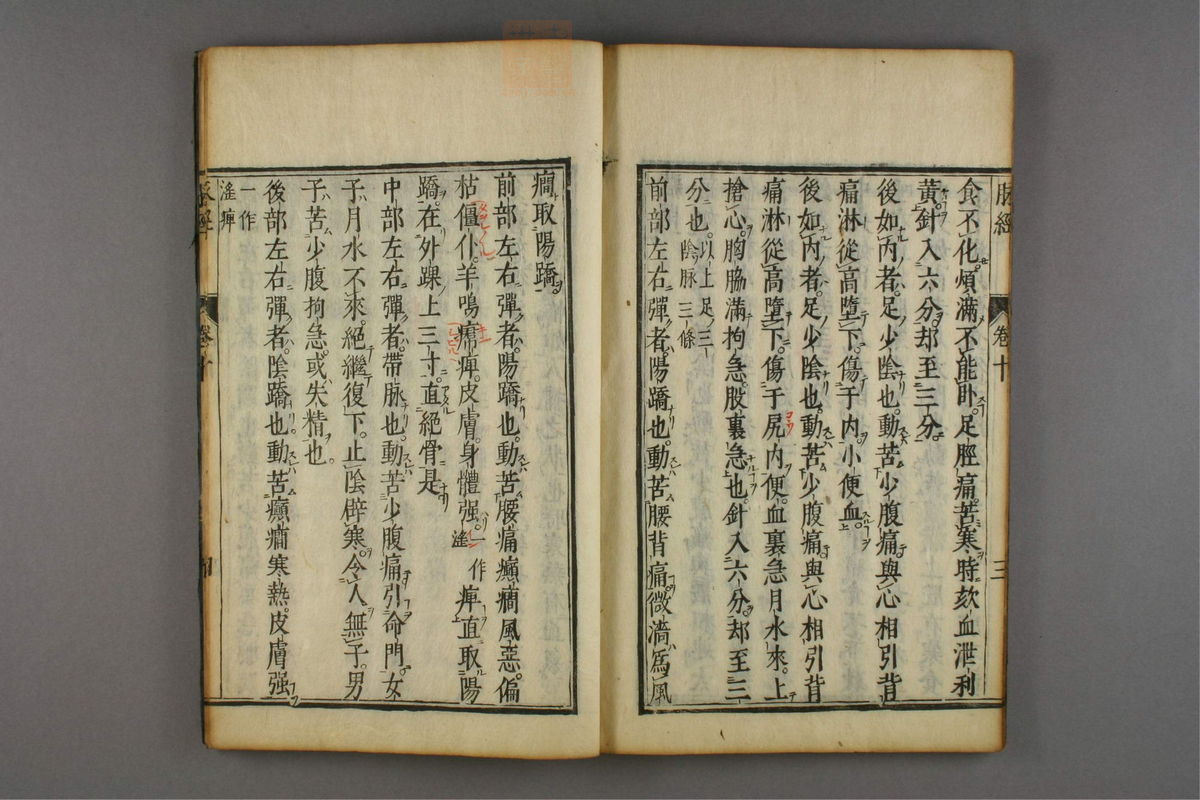 脉經 卷十 三
食不化煩滿不能卧足脛痛苦寒時欬血泄利
黃針入六分却至三分
後如内者足少陰也動苦少腹痛與心相引背
痛淋從高墮下傷于内小便血
後如内者足少陰也動苦少腹痛與心相引背
痛淋從高墮下傷于尻内便血裏急月水來上
搶心胸脇滿拘急股裏急也針入六分却至三
分也以上足三陰脉三條
前部左右彈者陽蹻也動苦腰背痛微濇爲風
癇取陽蹻
前部左右彈者陽蹻也動苦腰痛癲癇風惡偏
枯僵仆羊鳴痺皮膚身體强一作淫痺直取陽
蹻在外踝上三寸直絕骨是
中部左右彈者帶脉也動苦少腹痛引命門女
子月水不來絕繼復下止陰辟寒令人無子男
子苦少腹拘急或失精也
後部左右彈者陰蹻也動苦癲癇寒熱皮膚强
一作淫痺
卷十